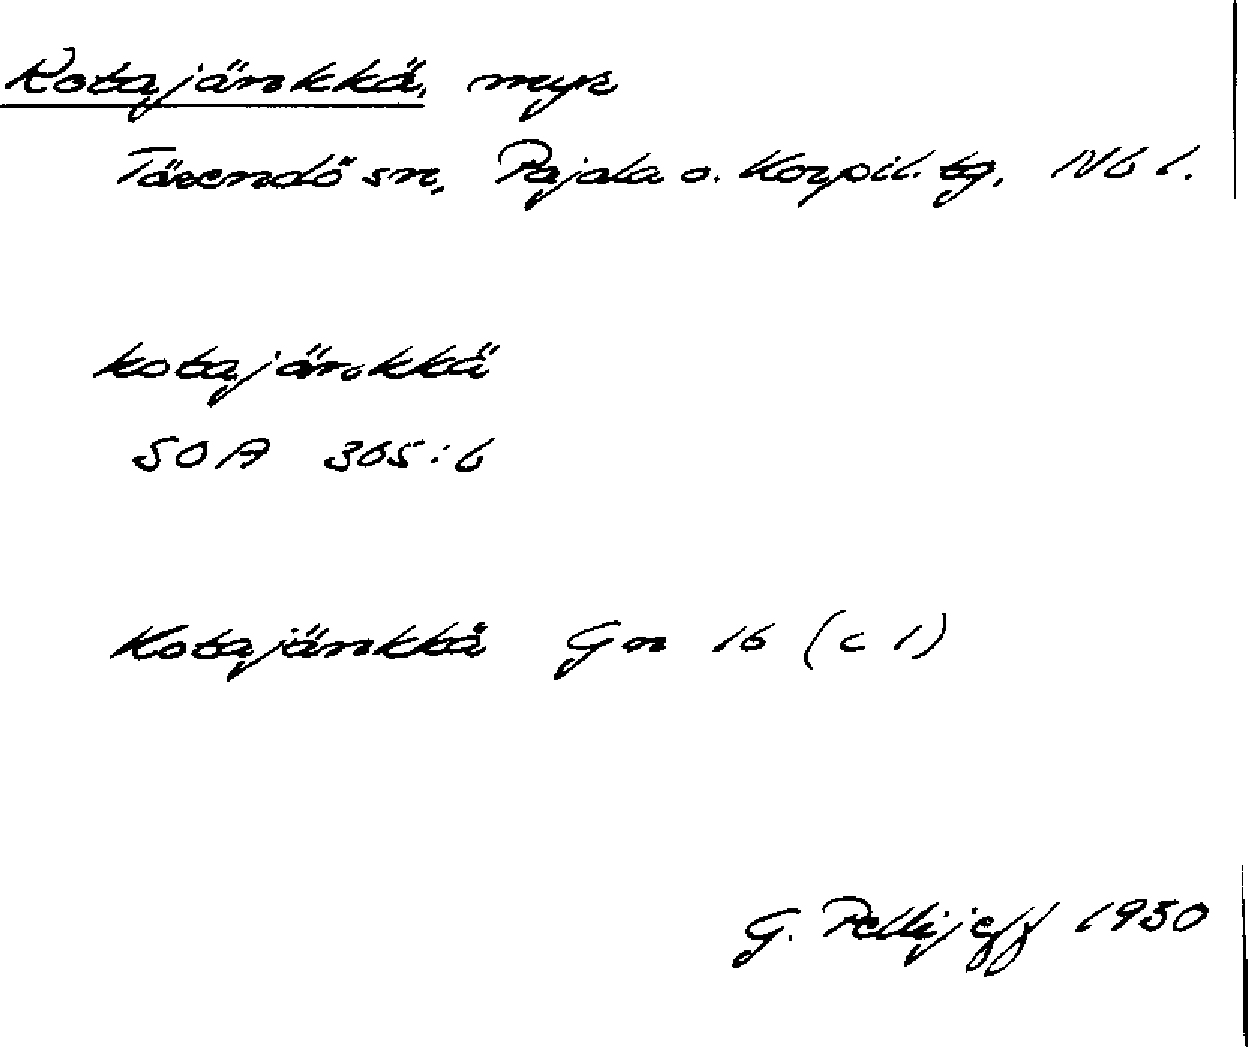 Kotajänkkä, myr
Tärendö sn, Pajala o. Korpil. tg, Nb l.
kotajäŋkkä
SOA 365:6
Kotajänkkä Gn 16 (c 1)
G. Pellijeff 1950